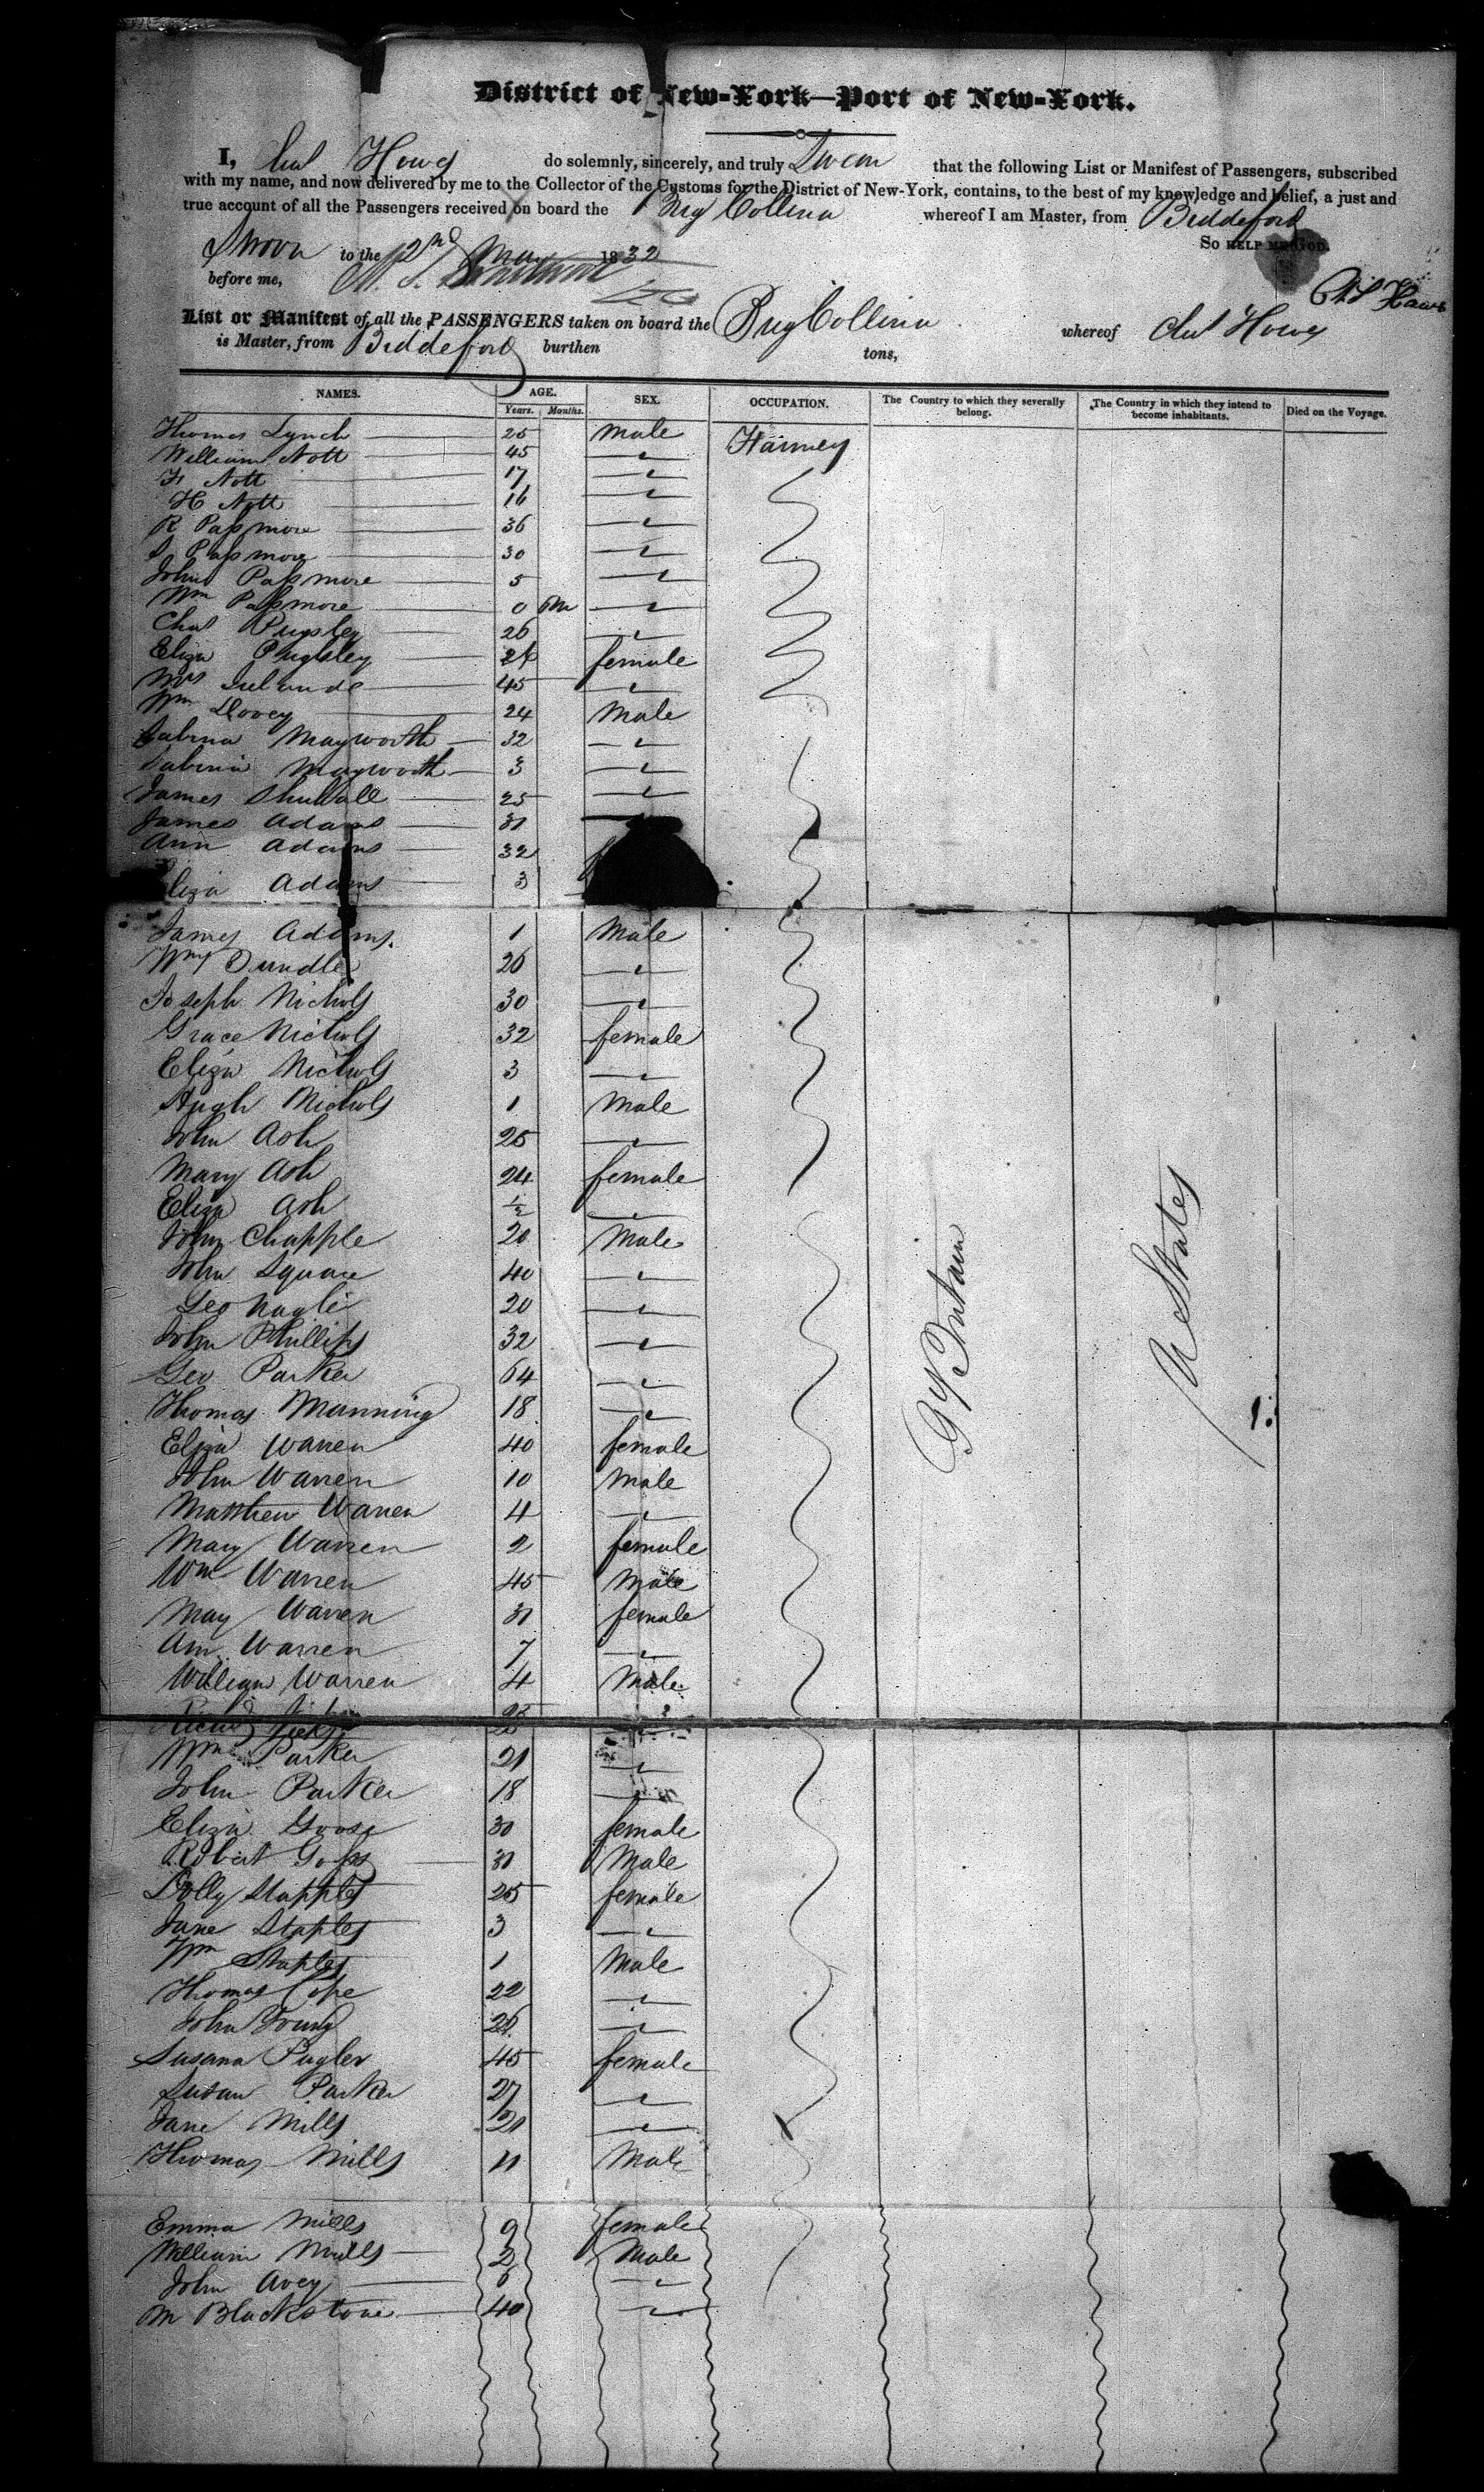 District of New-York—Port of New-York.
I, Howes do solemnly, sincerely, and truly Swear that the following List or Manifest of Passengers, subscribed
with my name, and now delivered by me to the Collector of the Customs for the District of New-York, contains, to the best of my knowledge and belief, a just and
true account of all the Passengers received on board the Brig Collina whereof I am Master, from Beddeford
So HELP ME GOD.
Sworn to the 2nd May 1832
before me,
List or Manifest of all the PASSENGERS taken on board the Brig Collina whereof Howes
is Master, from Beddeford burthen tons,
NAMES. AGE. SEX. OCCUPATION. The Country to which they severally belong. The Country in which they intend to become inhabitants. Died on the Voyage.
Years. Months.
Thomas Lynch 25 Male
William Nott 45
Nott 17
H Nott 16
R Passmore 36
S Passmore 30
John Passmore 5
Wm Passmore 0
Chas Pugsley 26
Eliza Pugsley female
Mrs 45
Wm 24 Male
Sabina Mayworth 32
Sabina Mayworth 3
James 25
James Adams 31
Ann Adams 32
Eliza Adams 3
James Adams. 1 Male
Wm 26
Joseph Nichols 30
Grace Nichols 32 female
Eliza Nichols 3
Hugh Nichols 1 Male
John Ash 25
Mary Ash 24 female
Eliza Ash ½
John Chapple 20 Male
John Square 40
Geo Nagle 20
John Phillips 32
Geo Parker 64
Thomas Manning 18
Eliza Warren 40 female
John Warren 10 Male
Matthew Warren 4
Mary Warren 2 female
Wm Warren 45 Male
Mary Warren 31 female
Ann Warren 7
William Warren 4 Male
Gt Britain
U States
Wm Parker 21
John Parker 18
Eliza Goose 30 female
Robert Goss 31 Male
Dolly Stapples 25 female
Jane Staples 3
Wm Staples 1 Male
Thomas Cope 22
John Young 26
Susana Pugler 45 female
Susan Parker 27
Jane Mills
Thomas Mills 11 Male
Emma Mills 9 female
William Mills 2 Male
John Avey 6
M Blackstone 40